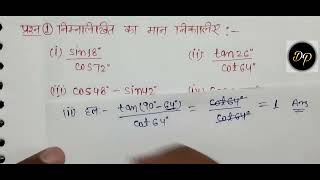 प्रश्न ① निम्नलिखित का मान निकालिए :-
(i) sin18°/cos72° (ii) tan26°/cot64°
(iii) cos48° - sin42°
(ii) हल:- tan(90°-64°)/cot64° = cot64°/cot64° = 1 Ans
DP